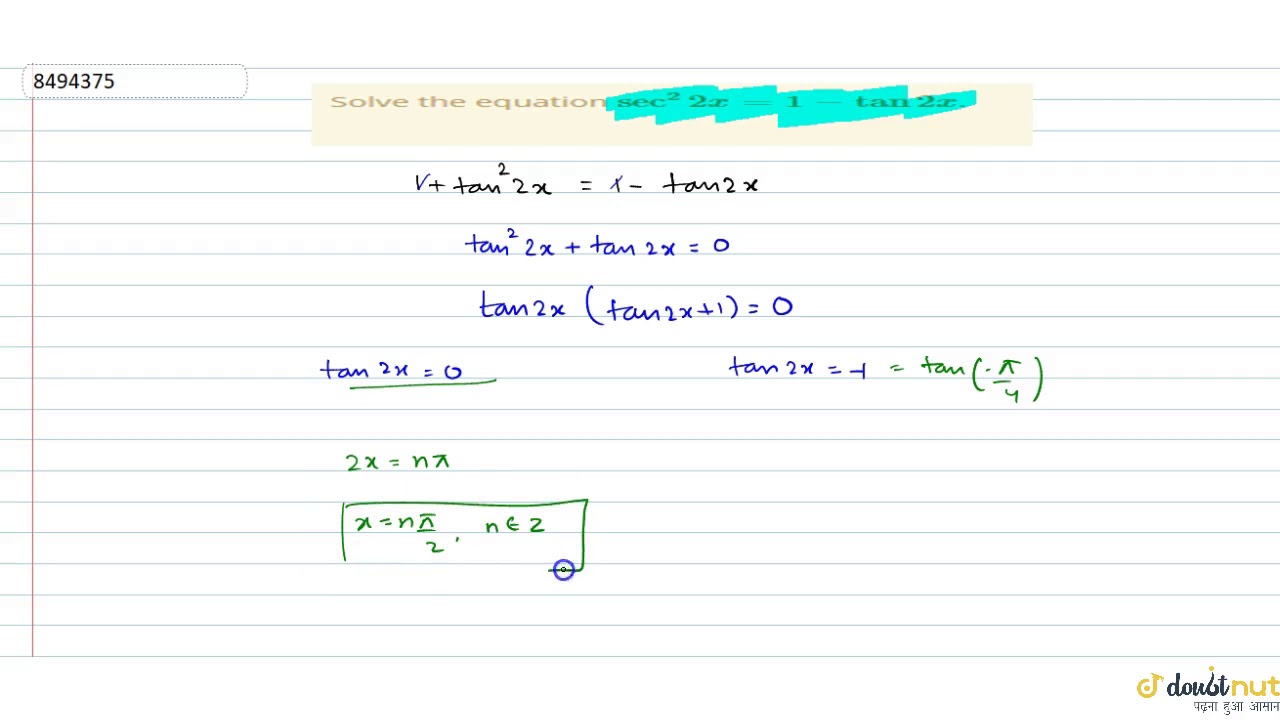 8494375
Solve the equation sec² 2x = 1 − tan 2x.
1 + tan² 2x = 1 - tan 2x
tan² 2x + tan 2x = 0
tan 2x (tan 2x + 1) = 0
tan 2x = 0
tan 2x = -1 = tan (-π/4)
2x = nπ
x = nπ/2, n ∈ Z
doubtnut
पढ़ना हुआ आसान